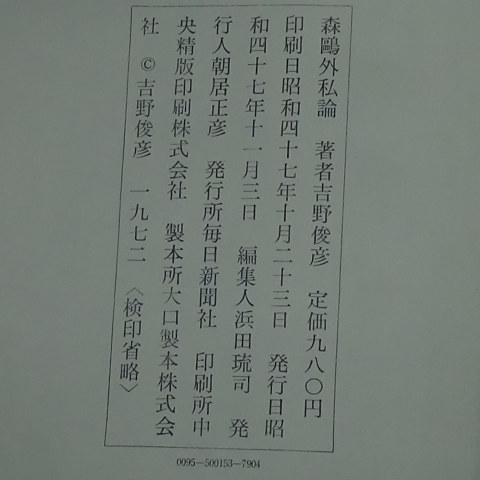 森鷗外私論　著者吉野俊彦　定価九八〇円
印刷日昭和四十七年十月二十三日　発行日昭
和四十七年十一月三日　編集人浜田琉司　発
行人朝居正彦　発行所毎日新聞社　印刷所中
央精版印刷株式会社　製本所大口製本株式会
社　©吉野俊彦　一九七二　〈検印省略〉
0095—500153—7904